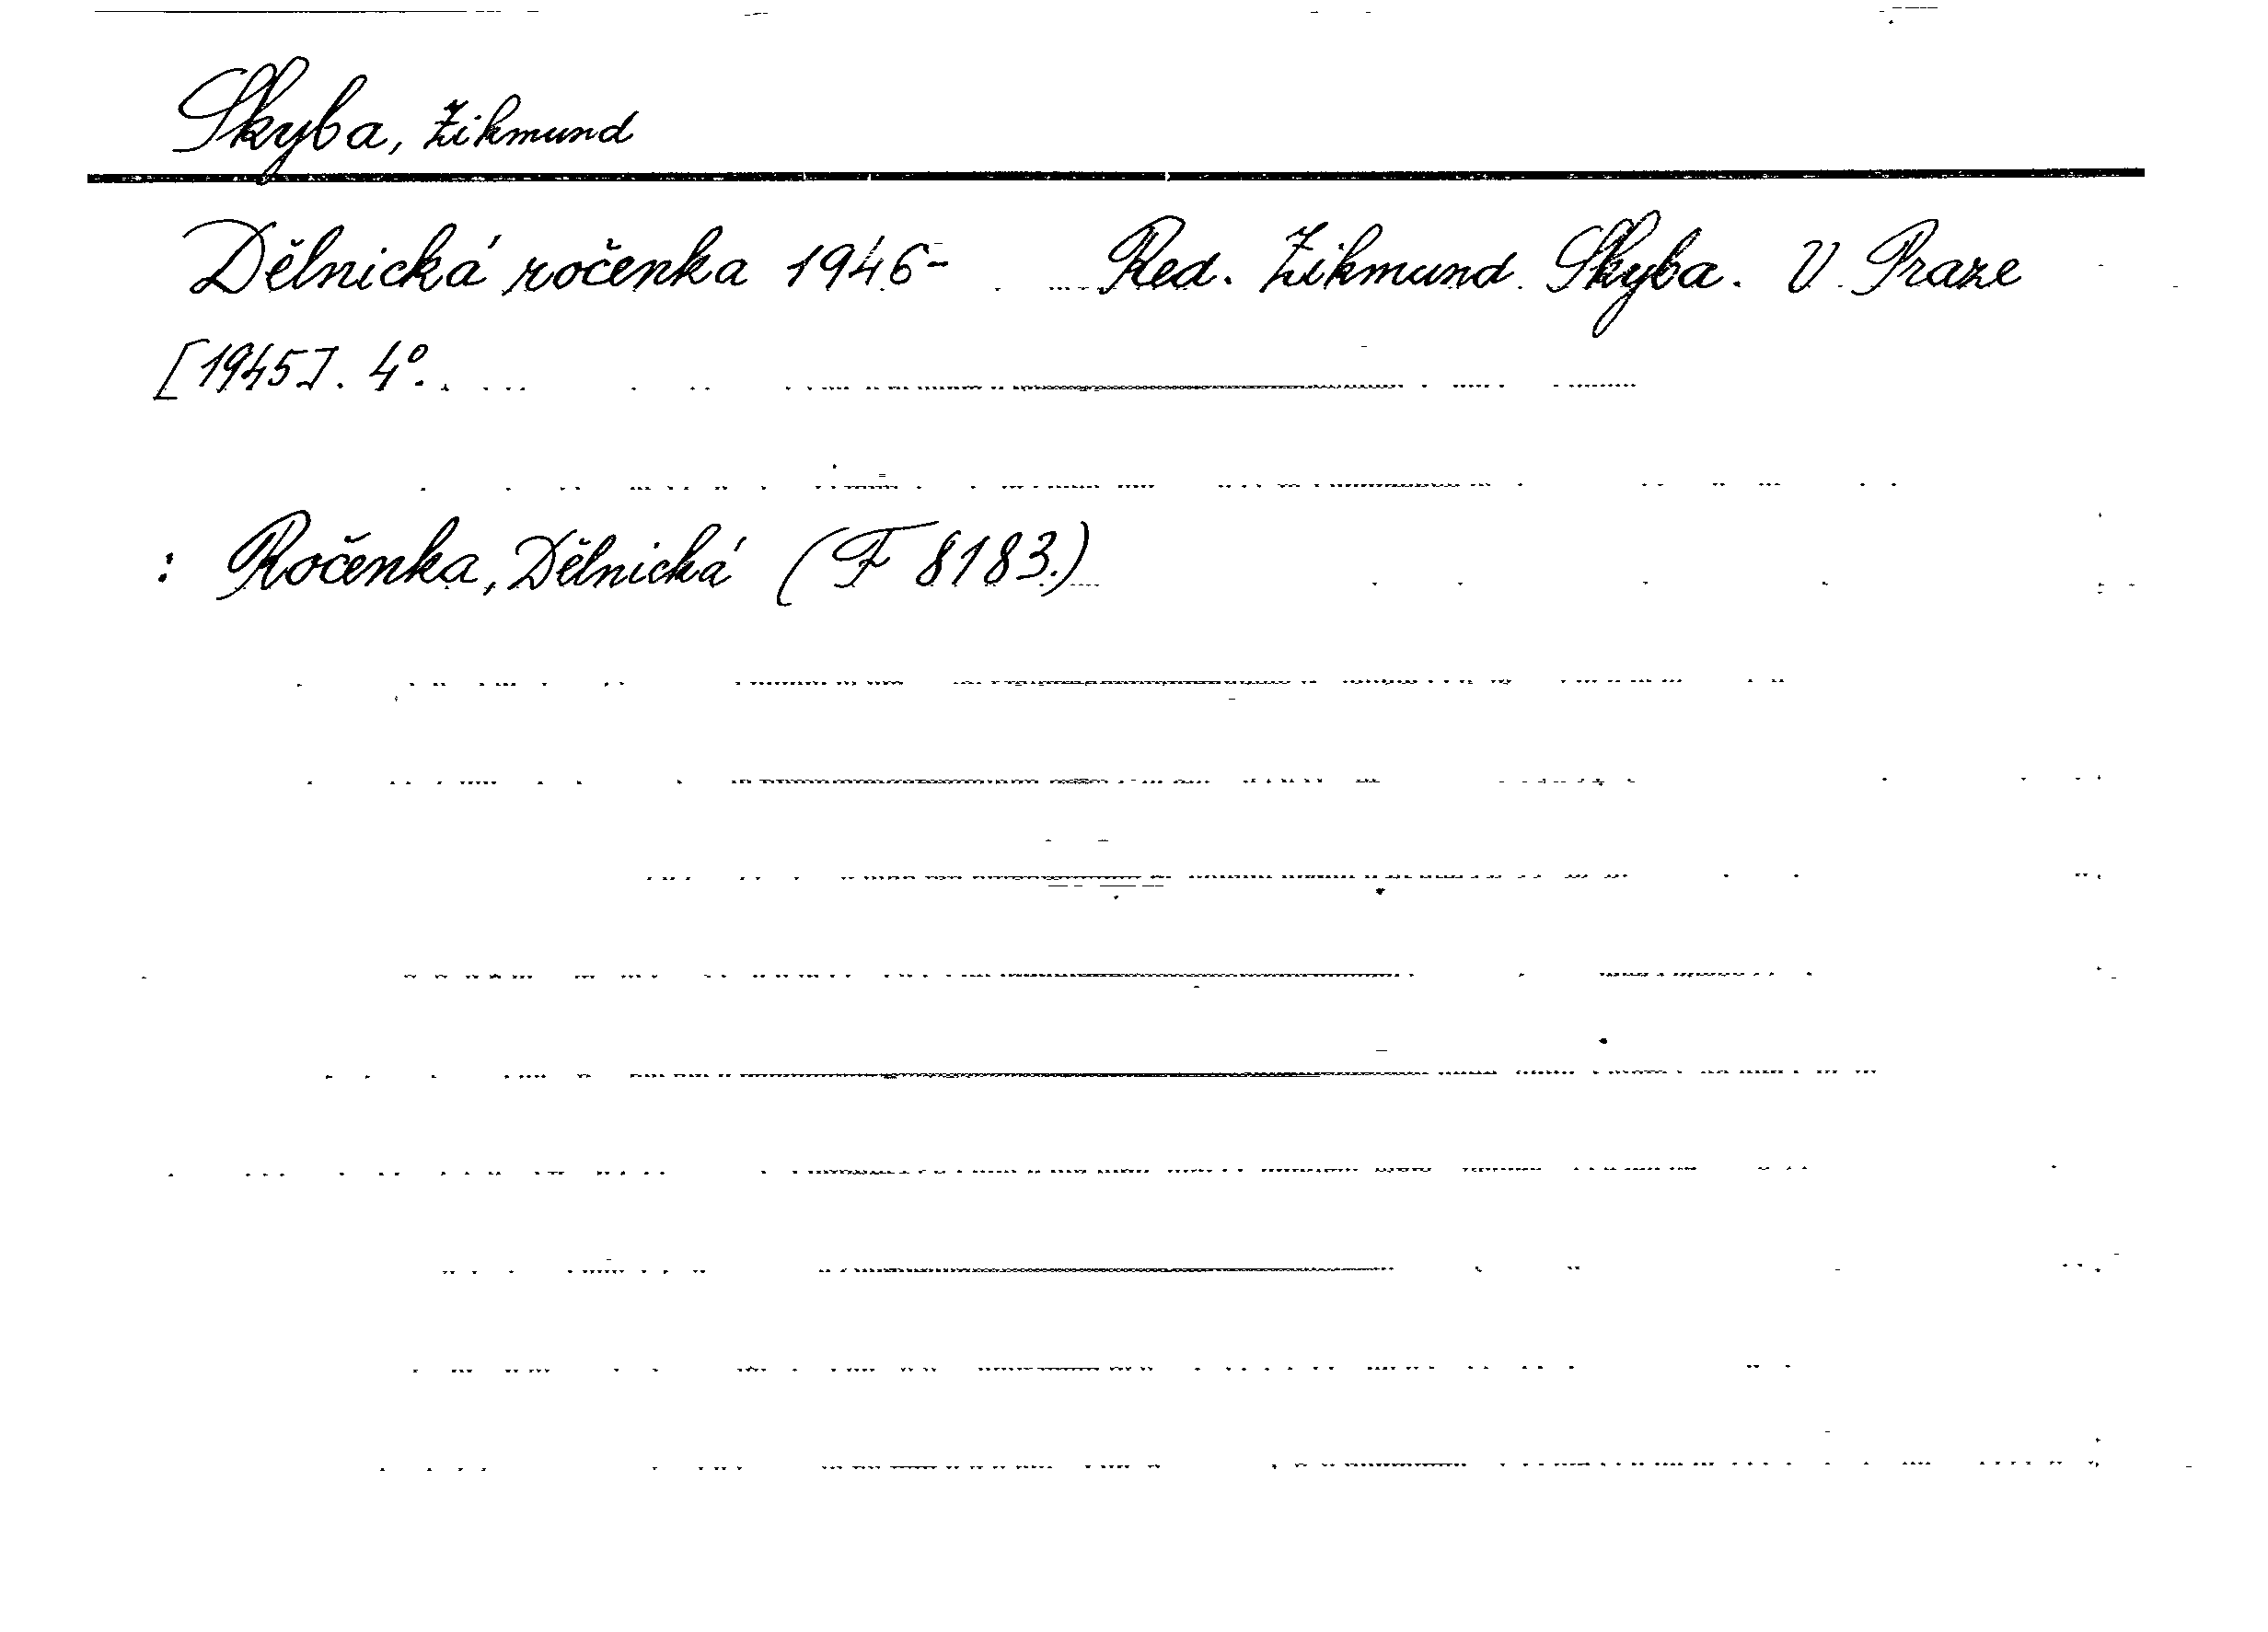 Skyba, Zikmund
Dělnická ročenka 1946- Red. Zikmund Skyba. V Praze
[1945]. 4°.
: Ročenka, Dělnická (F 8183.)